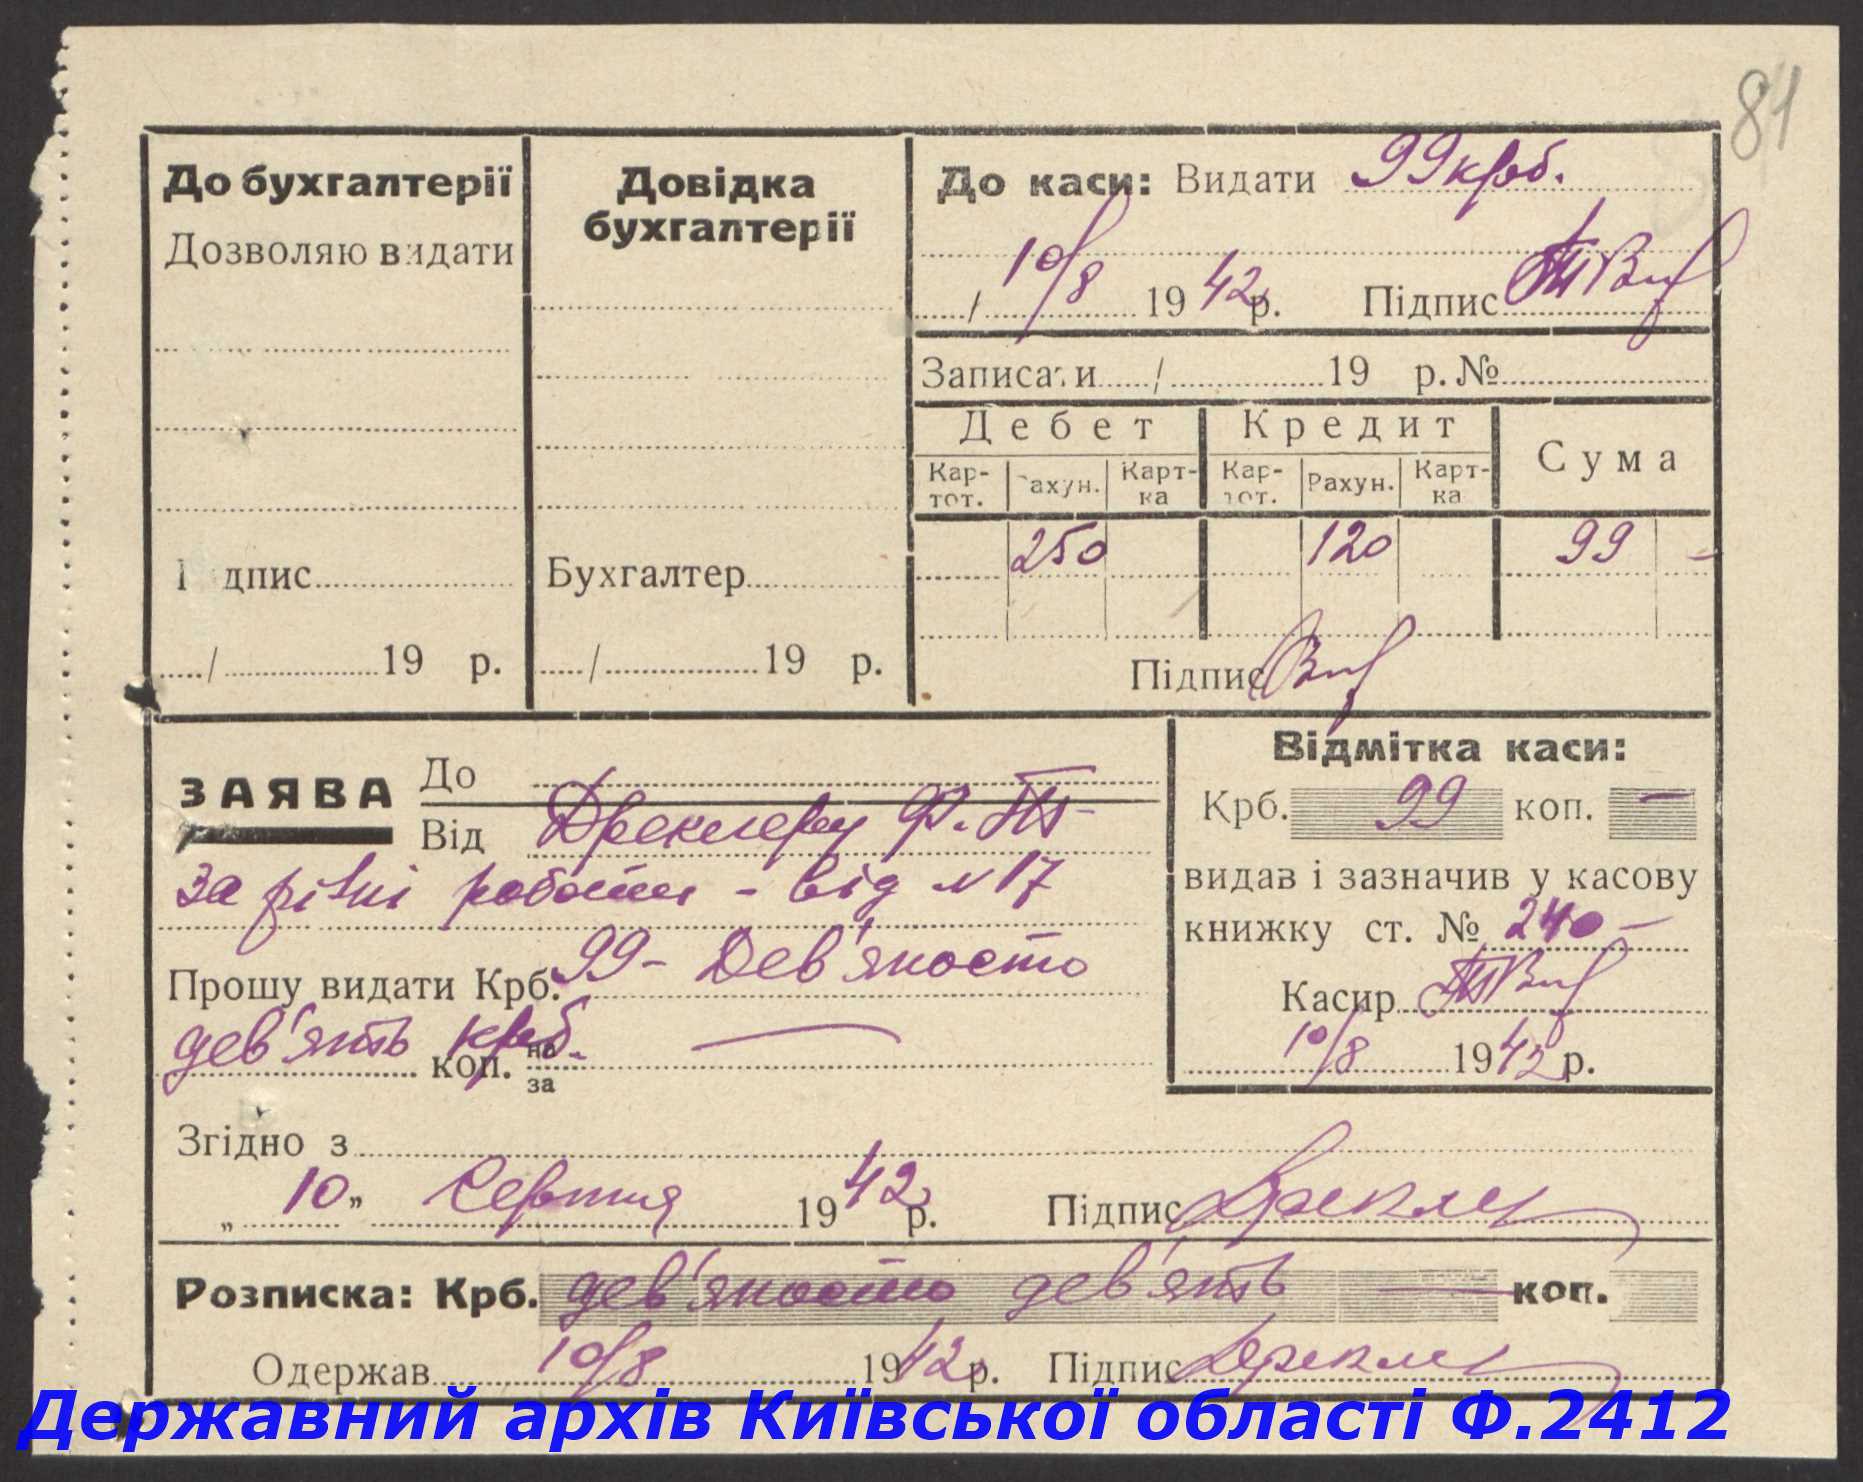 81
До бухгалтерії
Дозволяю видати
Підпис
/ 19 р.
Довідка
бухгалтерії
Бухгалтер
/ 19 р.
До каси: Видати 99 крб.
/ 10/8 19 42 р. Підпис
Записати / 19 р. №
Дебет Кредит Сума
Кар-тот. Рахун. Карт-ка Кар-тот. Рахун. Карт-ка
250 120 99 –
Підпис
ЗАЯВА До
Від Ф.
за різні роботи - від №17
Прошу видати Крб. 99 - Дев'яносто
дев'ять крб. коп. на
за
Відмітка каси:
Крб. 99 коп. –
видав і зазначив у касову
книжку ст. № 240 –
Касир
10/8 1942 р.
Згідно з
„ 10 " Серпня 19 42 р. Підпис
Розписка: Крб. дев'яносто дев'ять — коп.
Одержав 10/8 1942 р. Підпис
Державний архів Київської області Ф.2412